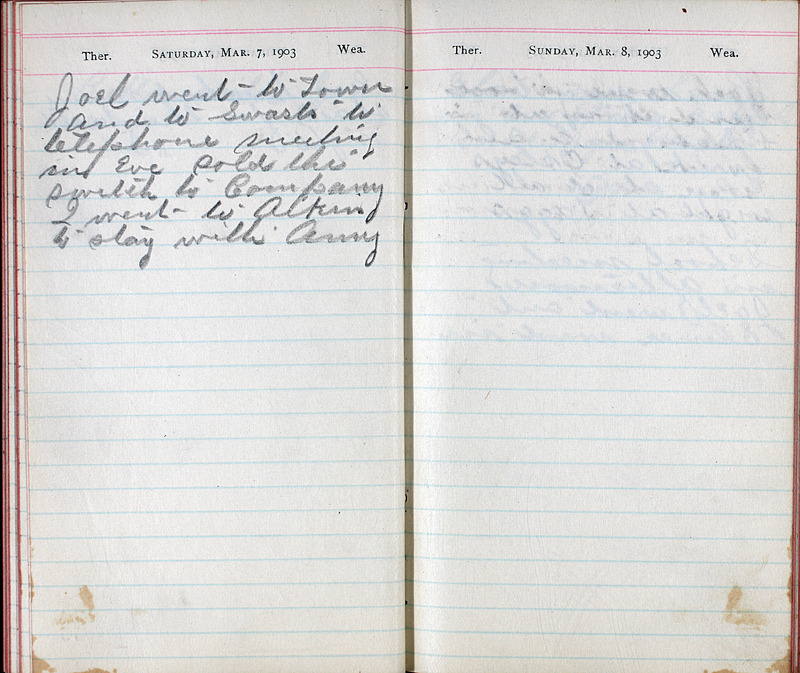 Ther. Saturday, Mar. 7, 1903 Wea.
Joel went to Town
and to Swarts to
telephone meeting
in Eve sold the
switch to Company
I went to Atkins
to stay with Anny
Ther. Sunday, Mar. 8, 1903 Wea.